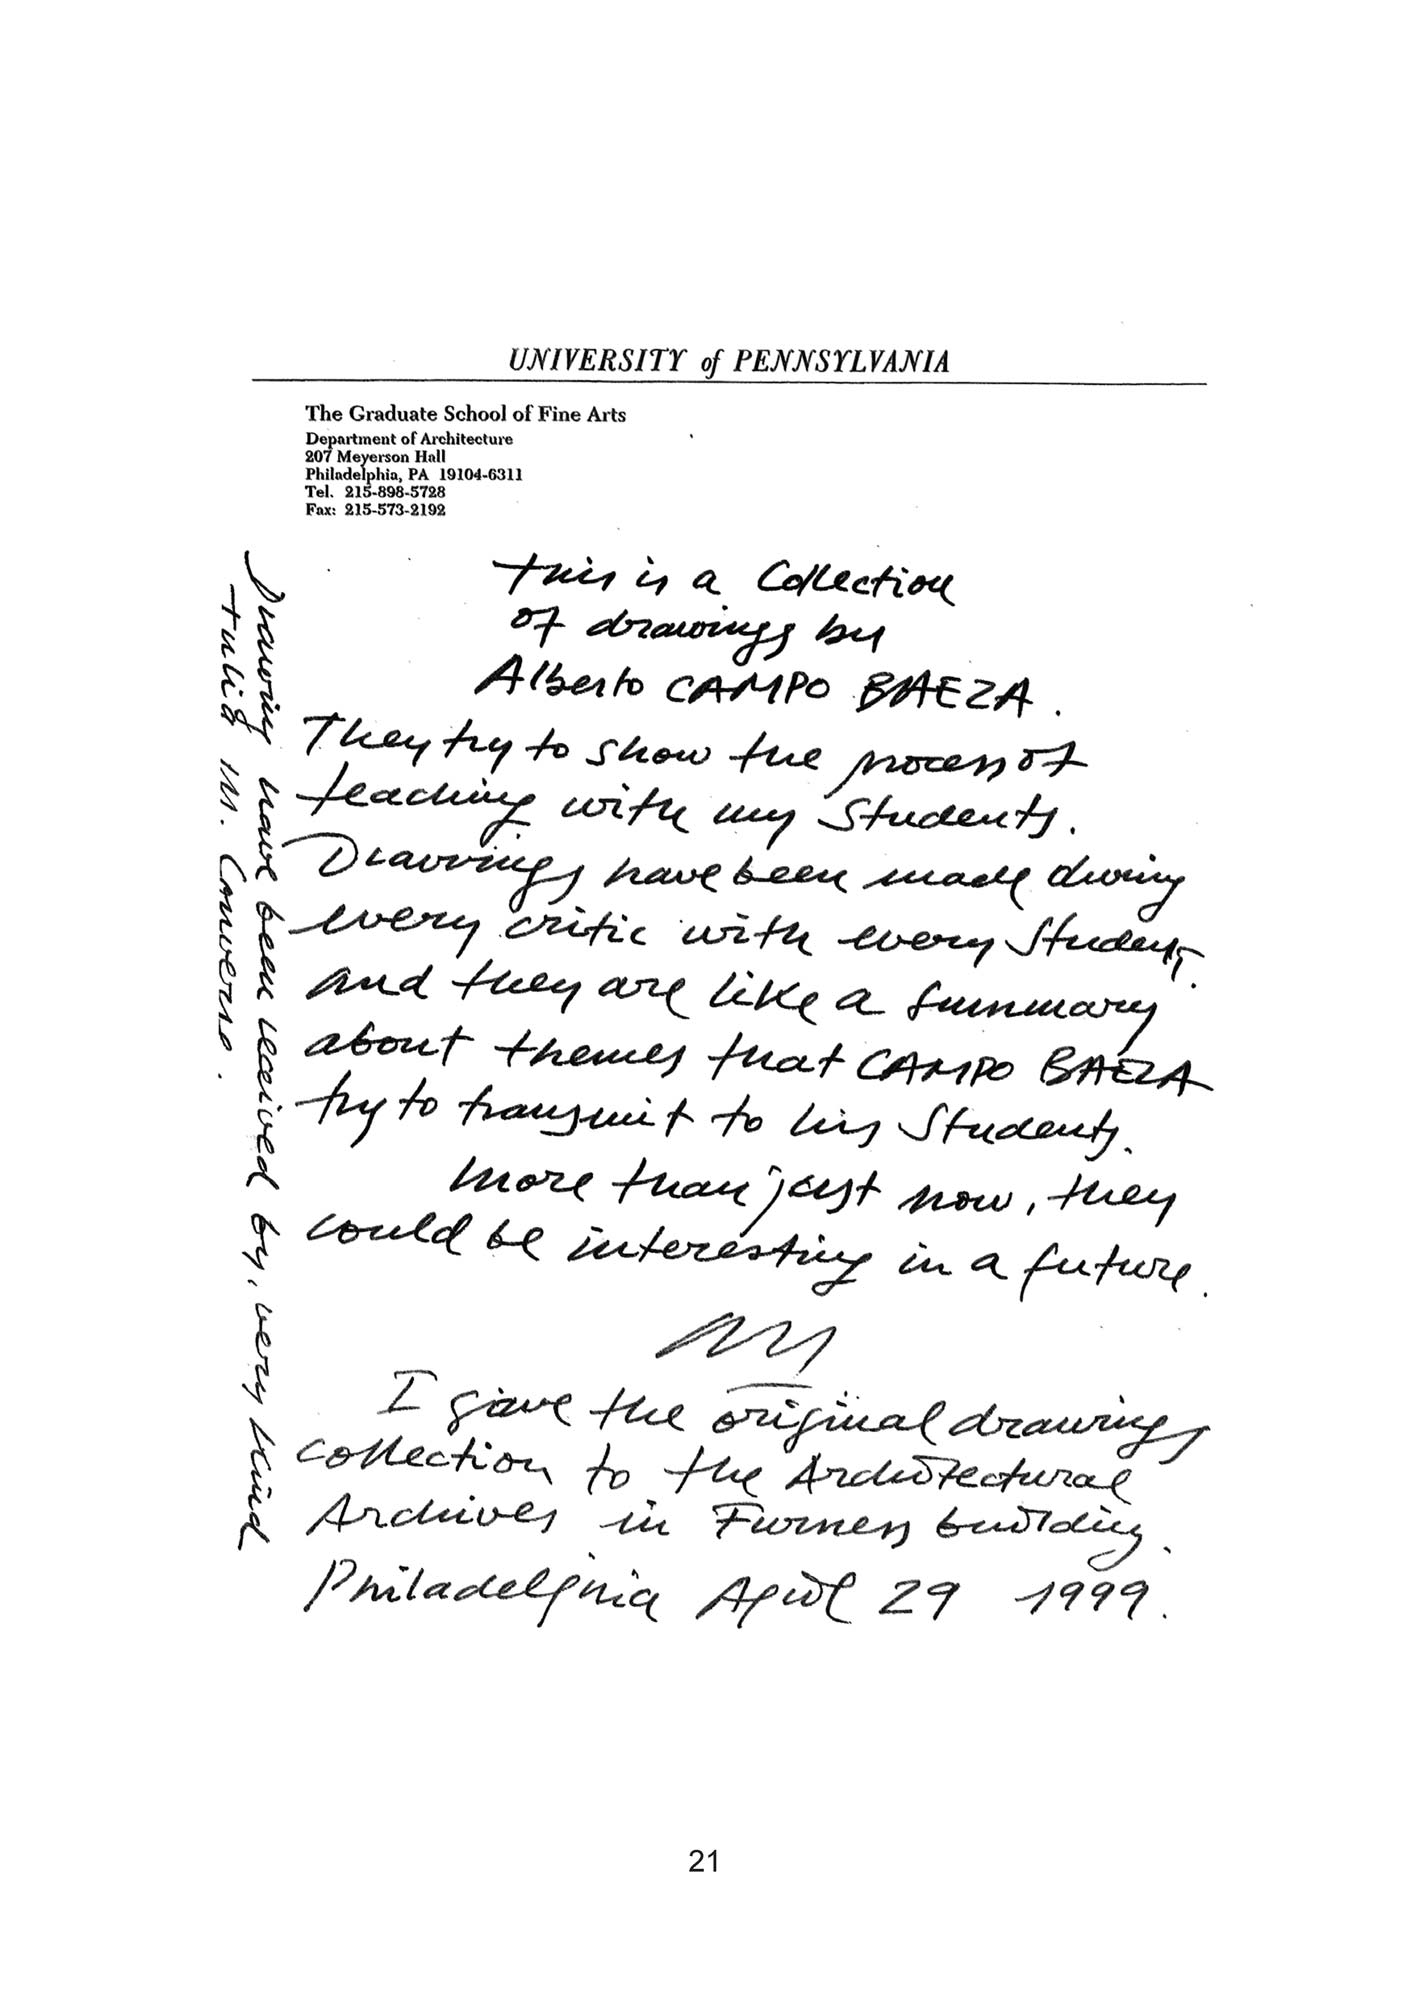 UNIVERSITY of PENNSYLVANIA
The Graduate School of Fine Arts
Department of Architecture
207 Meyerson Hall
Philadelphia, PA 19104-6311
Tel. 215-898-5728
Fax: 215-573-2192
this is a Collection
of drawings by
Alberto CAMPO BAEZA.
They try to show the process of
teaching with my Students.
Drawings have been made during
every critic with every Student,
and they are like a summary
about themes that CAMPO BAEZA
try to transmit to his Students.
More than just now, they
could be interesting in a future.
I gave the original drawings
collection to the Architectural
Archives in Furness building.
Philadelphia April 29 1999.
Drawing have been received by, very kind
Julia M. Converse.
21